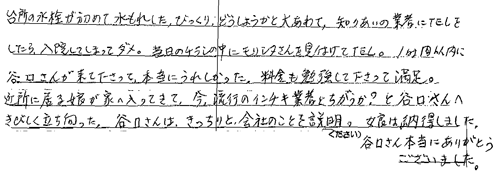 台所の水栓が初めて水もれした、びっくり、どうしようかと大あわて、知りあいの業者にTELを
したら、入院してしまってダメ。毎日のチラシの中にモリシタさんを見つけてTEL。1時間以内に
谷口さんが来て下さって、本当にうれしかった。料金も勉強して下さって満足。
近所に居る娘が家へ入ってきて、今、流行のインチキ業者とちがうか?と谷口さんへ
きびしく立ち向った。谷口さんは、きっちりと、会社のことを説明。女娘は納得しました。
(ください)
谷口さん本当にありがとう
ございました。